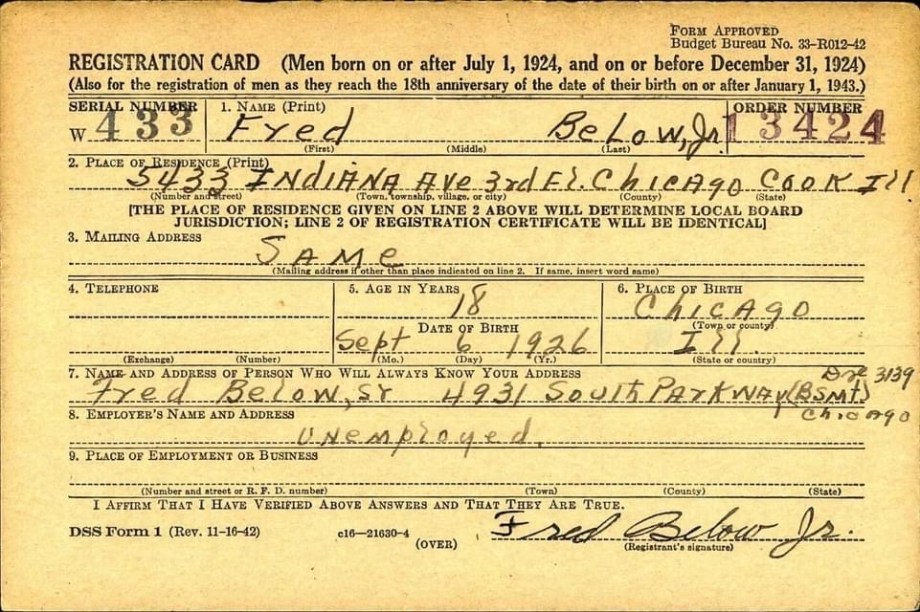 FORM APPROVED
Budget Bureau No. 33-R012-42
REGISTRATION CARD (Men born on or after July 1, 1924, and on or before December 31, 1924)
(Also for the registration of men as they reach the 18th anniversary of the date of their birth on or after January 1, 1943.)
SERIAL NUMBER 1. NAME (Print) ORDER NUMBER
W 433 Fred Below, Jr. 13424
(First) (Middle) (Last)
2. PLACE OF RESIDENCE (Print)
5433 INDIANA AVE 3rd Fl. CHICAGO COOK Ill
(Number and street) (Town, township, village, or city) (County) (State)
[THE PLACE OF RESIDENCE GIVEN ON LINE 2 ABOVE WILL DETERMINE LOCAL BOARD
JURISDICTION; LINE 2 OF REGISTRATION CERTIFICATE WILL BE IDENTICAL]
3. MAILING ADDRESS
SAME
(Mailing address if other than place indicated on line 2. If same, insert word same)
4. TELEPHONE 5. AGE IN YEARS 6. PLACE OF BIRTH
18 CHICAGO
DATE OF BIRTH (Town or county)
Sept 6 1926 Ill.
(Exchange) (Number) (Mo.) (Day) (Yr.) (State or country)
7. NAME AND ADDRESS OF PERSON WHO WILL ALWAYS KNOW YOUR ADDRESS
3139
Fred Below, Sr 4931 South Parkway (BSMT.)
8. EMPLOYER'S NAME AND ADDRESS Chicago
Unemployed.
9. PLACE OF EMPLOYMENT OR BUSINESS
(Number and street or R. F. D. number) (Town) (County) (State)
I AFFIRM THAT I HAVE VERIFIED ABOVE ANSWERS AND THAT THEY ARE TRUE.
DSS Form 1 (Rev. 11-16-42) c16—21630-4 (OVER) Fred Below Jr.
(Registrant's signature)